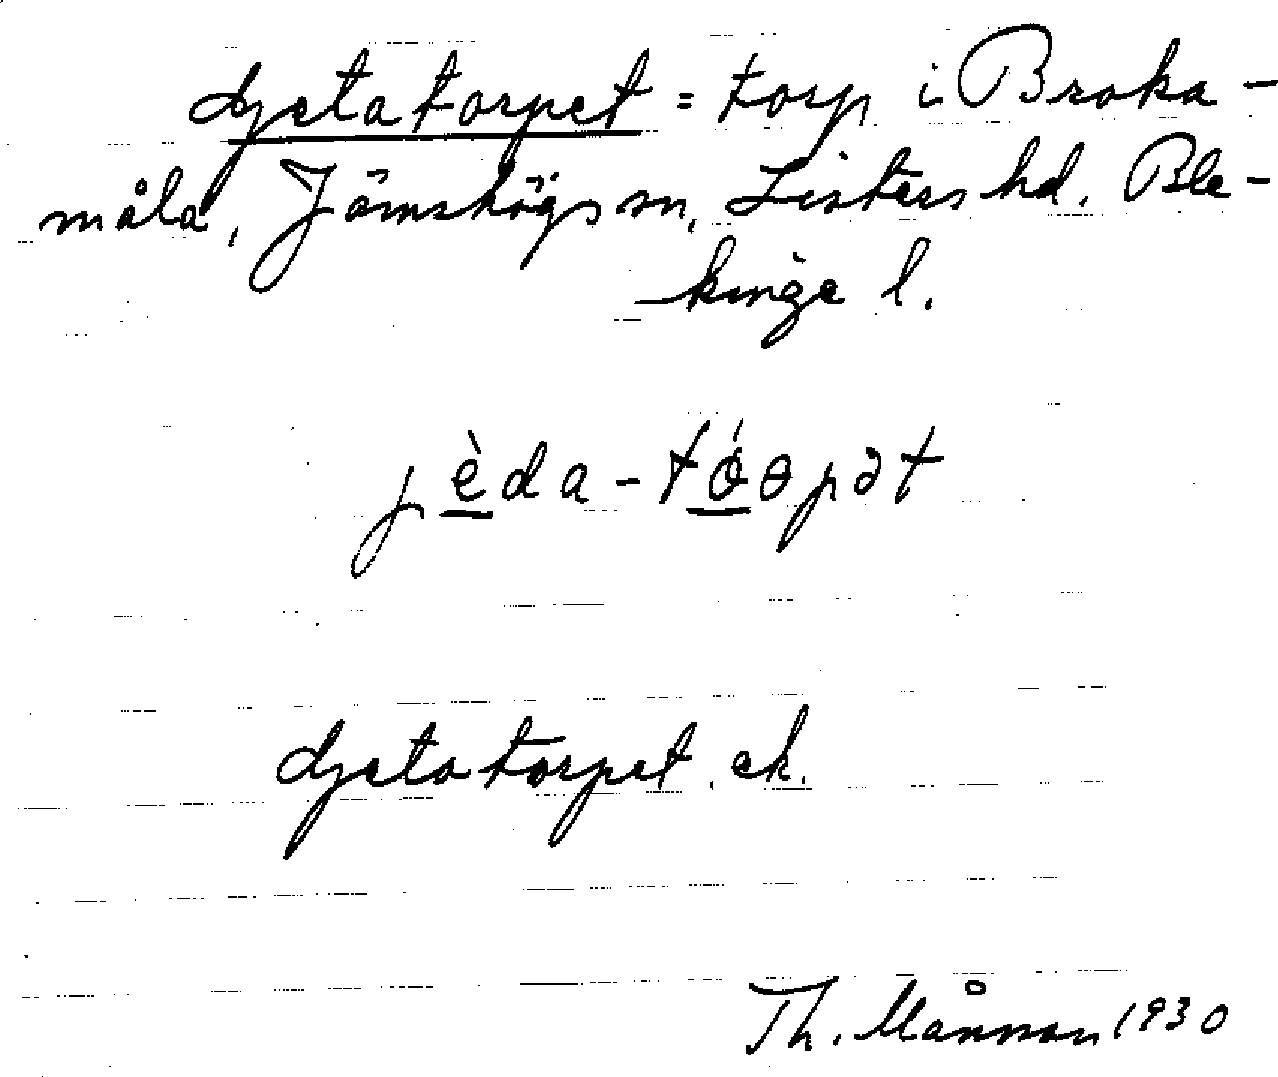 Gjetatorpet = torp i Broka-
måla, Jämshögs sn, Listers hd. Ble-
kinge l.
jèda-tóopət
Gjetatorpet. ek.
Th. Månsson 1930